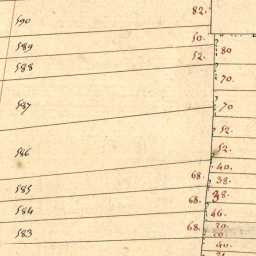 590 82.
589 50. 80
588 52.
70.
587 70
52.
586 52.
40.
585 68. 38.
68. 38.
584 46.
583 68. 30.
40.